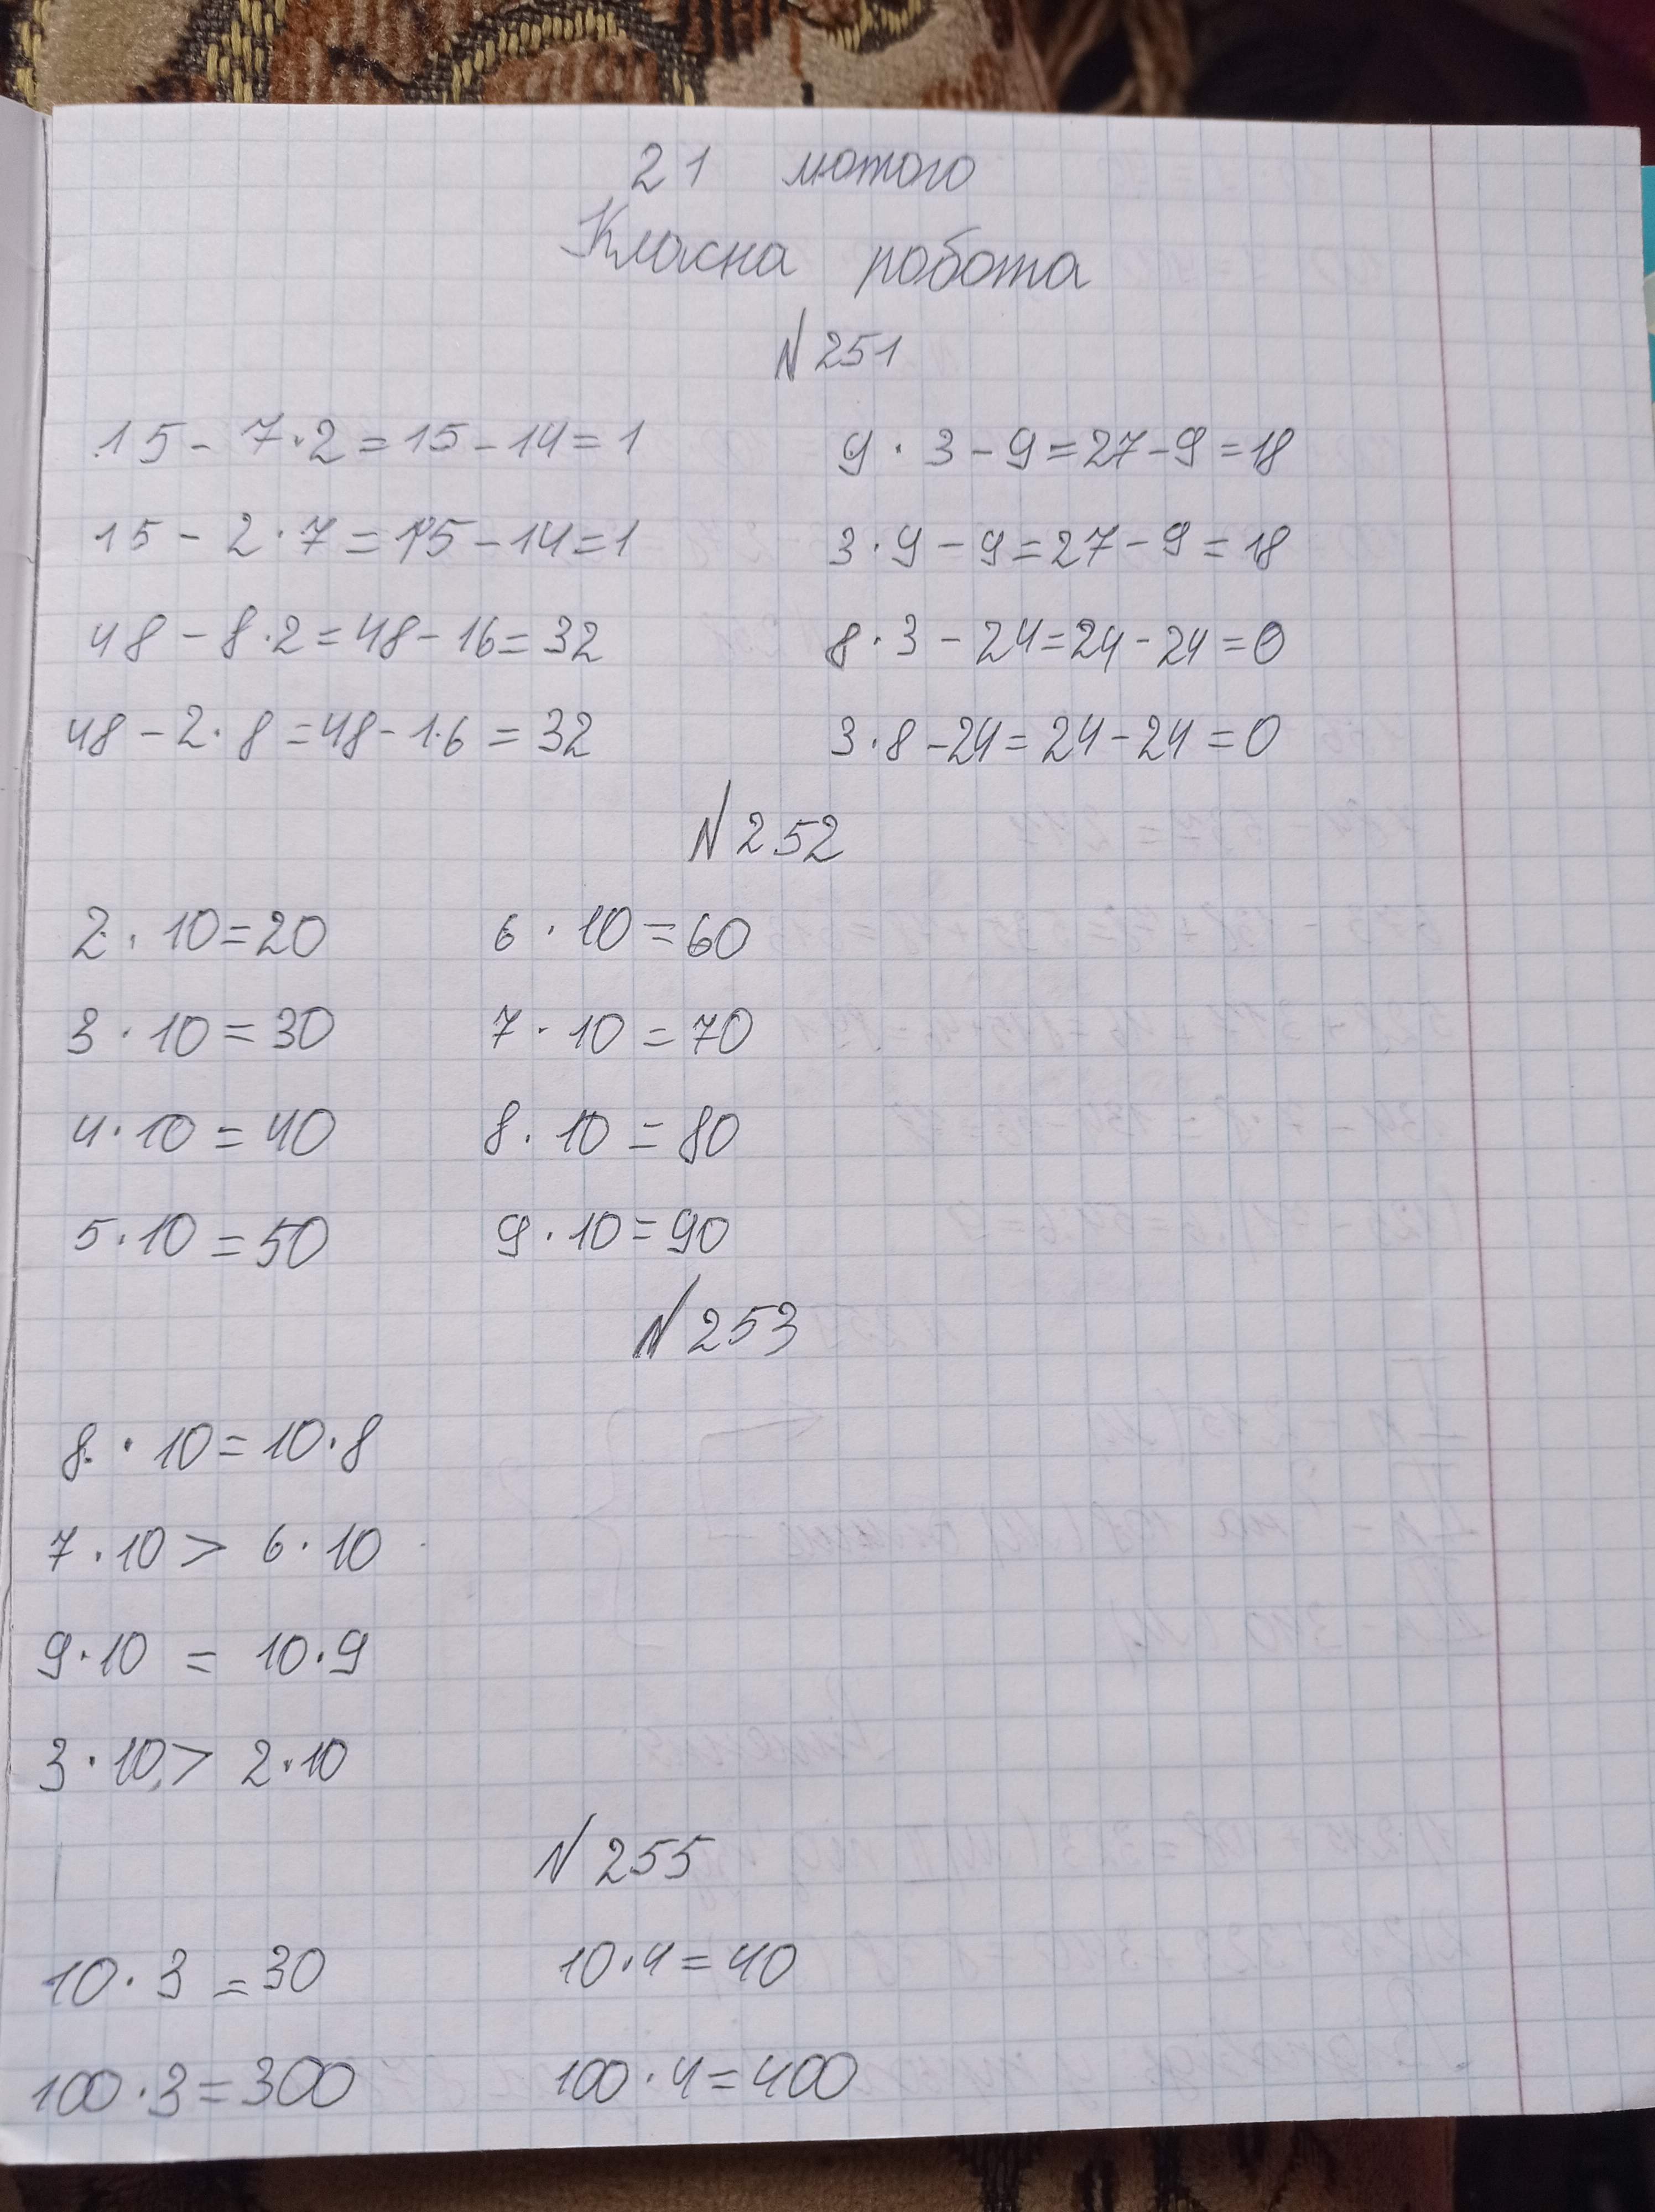 21 лютого
Класна робота
N 251
15 - 7 · 2 = 15 - 14 = 1 9 · 3 - 9 = 27 - 9 = 18
15 - 2 · 7 = 15 - 14 = 1 3 · 9 - 9 = 27 - 9 = 18
48 - 8 · 2 = 48 - 16 = 32 8 · 3 - 24 = 24 - 24 = 0
48 - 2 · 8 = 48 - 16 = 32 3 · 8 - 24 = 24 - 24 = 0
N 252
2 · 10 = 20 6 · 10 = 60
3 · 10 = 30 7 · 10 = 70
4 · 10 = 40 8 · 10 = 80
5 · 10 = 50 9 · 10 = 90
N 253
8 · 10 = 10 · 8
7 · 10 > 6 · 10
9 · 10 = 10 · 9
3 · 10 > 2 · 10
N 255
10 · 3 = 30 10 · 4 = 40
100 · 3 = 300 100 · 4 = 400